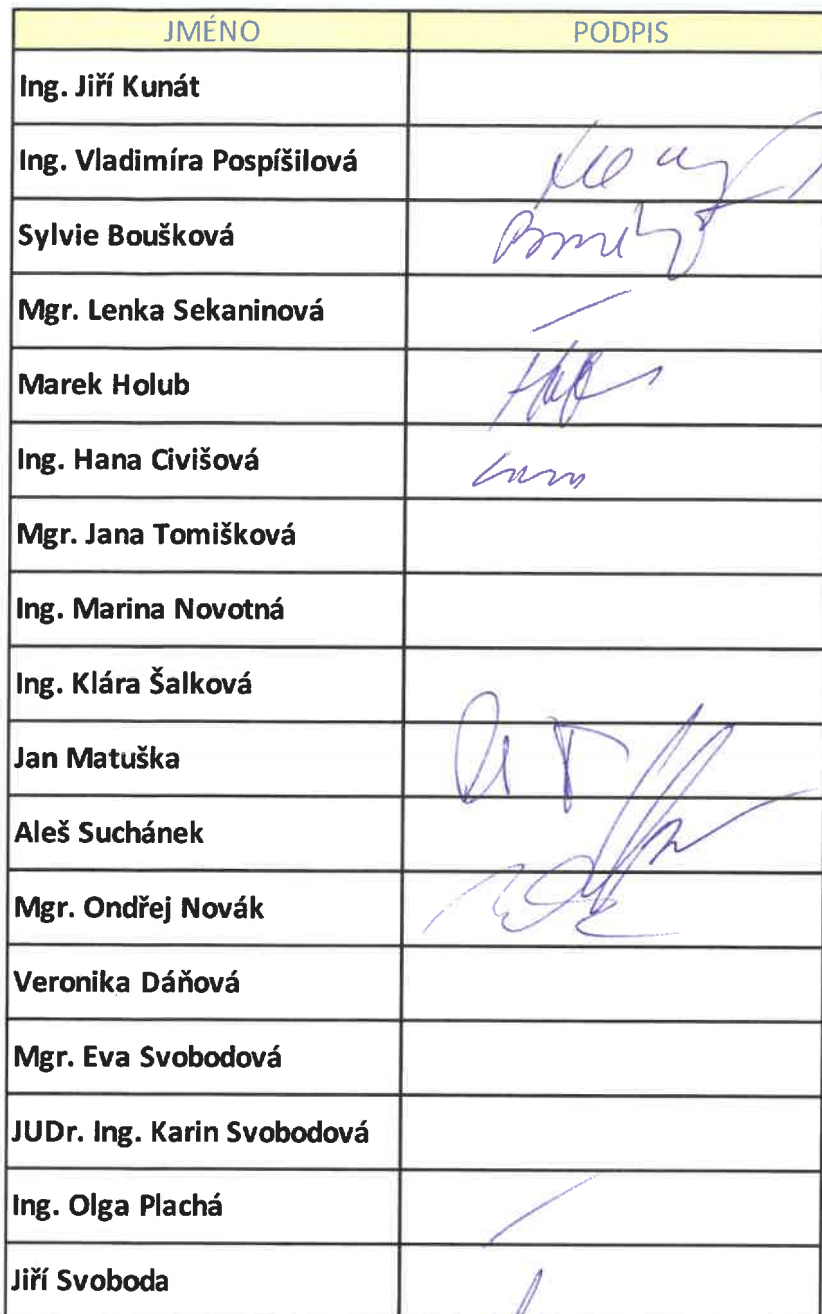 JMÉNO PODPIS
Ing. Jiří Kunát
Ing. Vladimíra Pospíšilová
Sylvie Boušková
Mgr. Lenka Sekaninová
Marek Holub
Ing. Hana Civišová
Mgr. Jana Tomišková
Ing. Marina Novotná
Ing. Klára Šalková
Jan Matuška
Aleš Suchánek
Mgr. Ondřej Novák
Veronika Dáňová
Mgr. Eva Svobodová
JUDr. Ing. Karin Svobodová
Ing. Olga Plachá
Jiří Svoboda